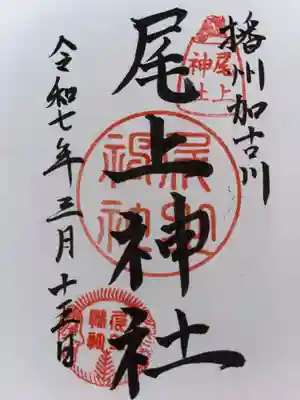 播州加古川
尾上神社
令和七年三月十五日
尾上
神社